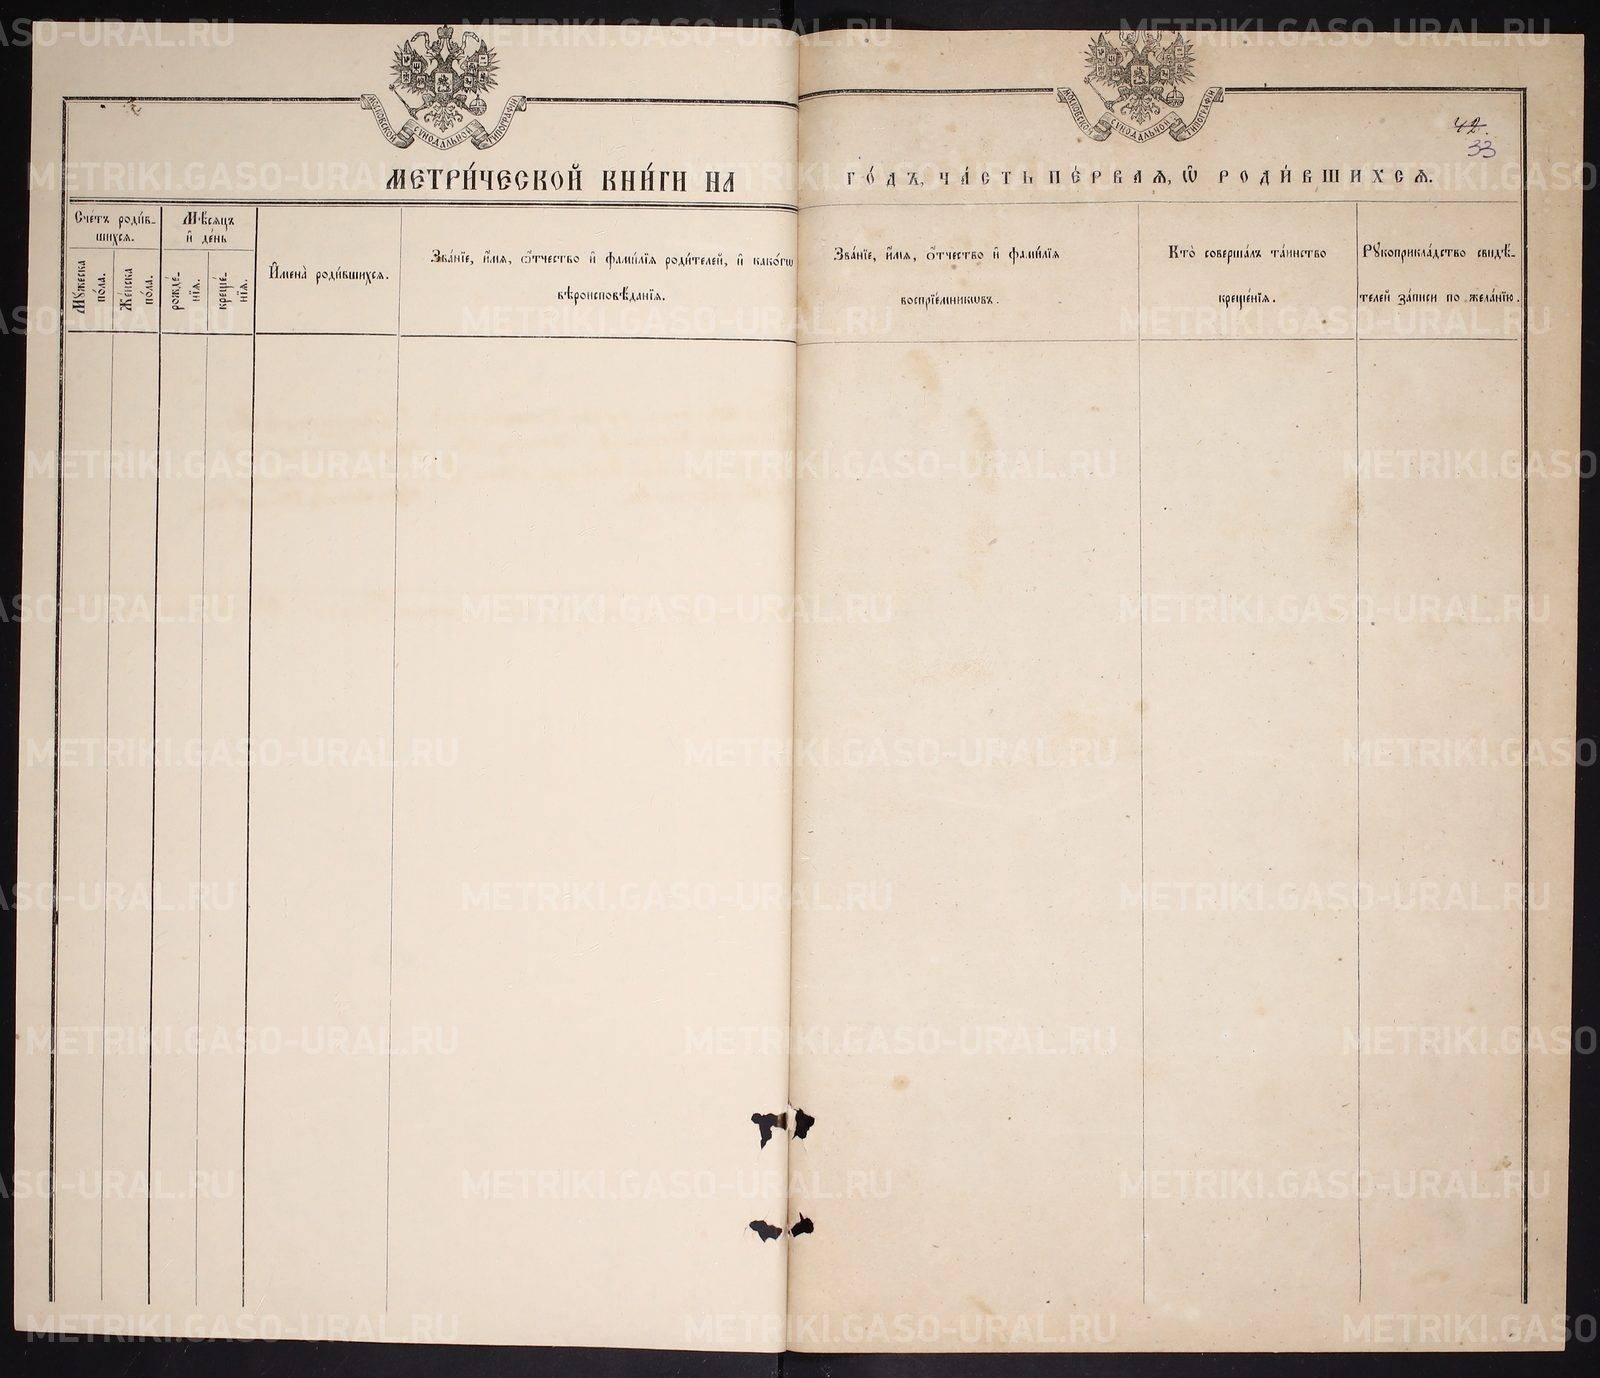 МОСКОВСКОЙ СУНОДАЛЬНОЙ ТИПОГРАФІИ
МОСКОВСКОЙ СУНОДАЛЬНОЙ ТИПОГРАФІИ
42.
33
МЕТРИ́ЧЕСКОЙ КНИ́ГИ НА ГО́ДЪ, ЧА́СТЬ ПЕ́РВАЯ, Ѡ РОДИ́ВШИХСЯ.
Сче́тъ роди́в-
шихся.
Мѣ́сяцъ
и҆ де́нь
Мꙋ́жеска
по́ла.
Же́нска
по́ла.
рожде́-
нїя.
креще́-
нїя.
И҆мена̀ роди́вшихся.
Зва́нїе, и҆́мя, ѻ҆́тчество и҆ фами́лїя роди́телей, и҆ како́гѡ
вѣроисповѣ́данїя.
Зва́нїе, и҆́мя, ѻ҆́тчество и҆ фами́лїя
воспрїе́мникѡвъ.
Кто̀ соверша́лъ та́инство
креще́нїя.
Рꙋкоприкла́дство свидѣ́-
телей за́писи по жела́нїю.
METRIKI.GASO-URAL.RU